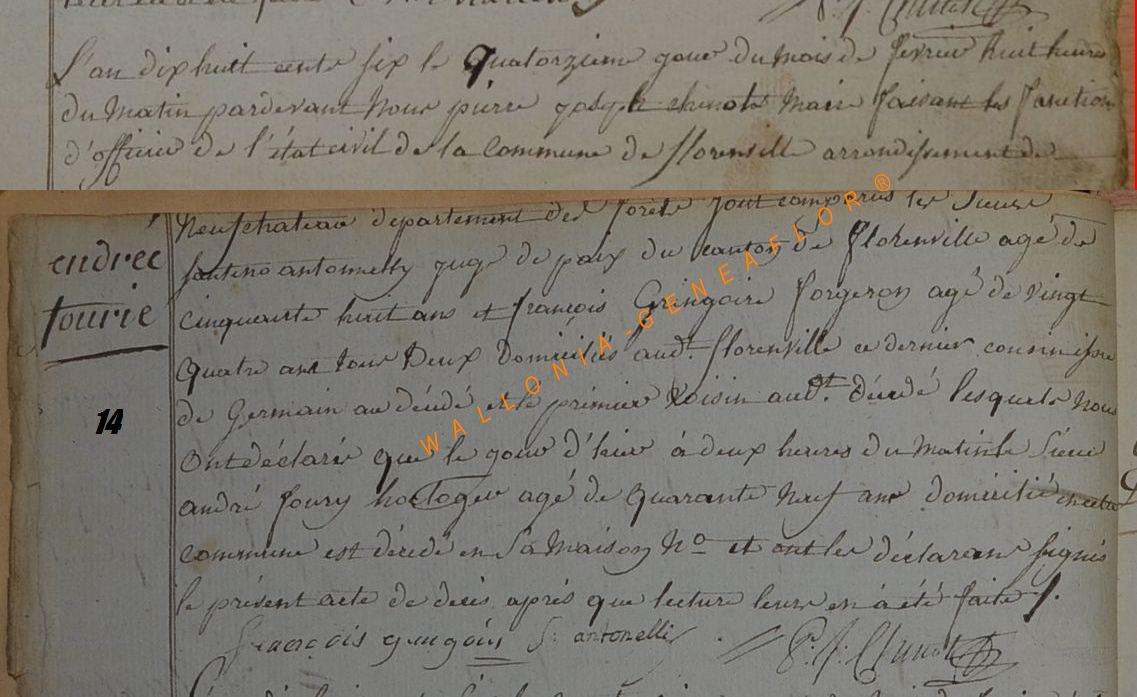 L'an dix huit cents six le quatorzieme jour du mois de fevrier huit heures
du Matin pardevant Nous pierre joseph chinot Maire faisant les fonctions
d'officier de l'état civil de la Commune de florenville arrondissement de
Neufchateau departement des forêts sont comparus les Sieurs
antonnelly juge de paix du canton de florenville agé de
cinquante huit ans et françois Gringoire forgeron agé de vingt
quatre ans tous Deux Domiciliés audt. florenville ce dernier
de Germain au décédé et le premier Voisin audt. décédé lesquels Nous
Ont déclarés que le jour d'hier à deux heures du Matin le Sieur
andré foury horloger agé de quarante Neuf ans domicilié en cette
commune est décédé en Sa Maison No et ont les déclarans signés
le présent acte de décès après que lecture leurs en a été faite
françois gringoir S: antonelli P: J: Chinot
endreé
fourie
14
WALLONIA-GENEAFLOR®